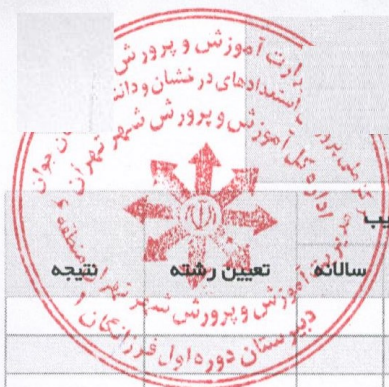 وزارت آموزش و پرورش
مرکز ملی پرورش استعدادهای درخشان و دانش پژوهان جوان
اداره کل آموزش و پرورش شهر تهران
مدیریت آموزش و پرورش شهر تهران منطقه ۶
دبیرستان دوره اول فرزانگان ۱
یب
سالانه
تعیین رشته
نتیجه